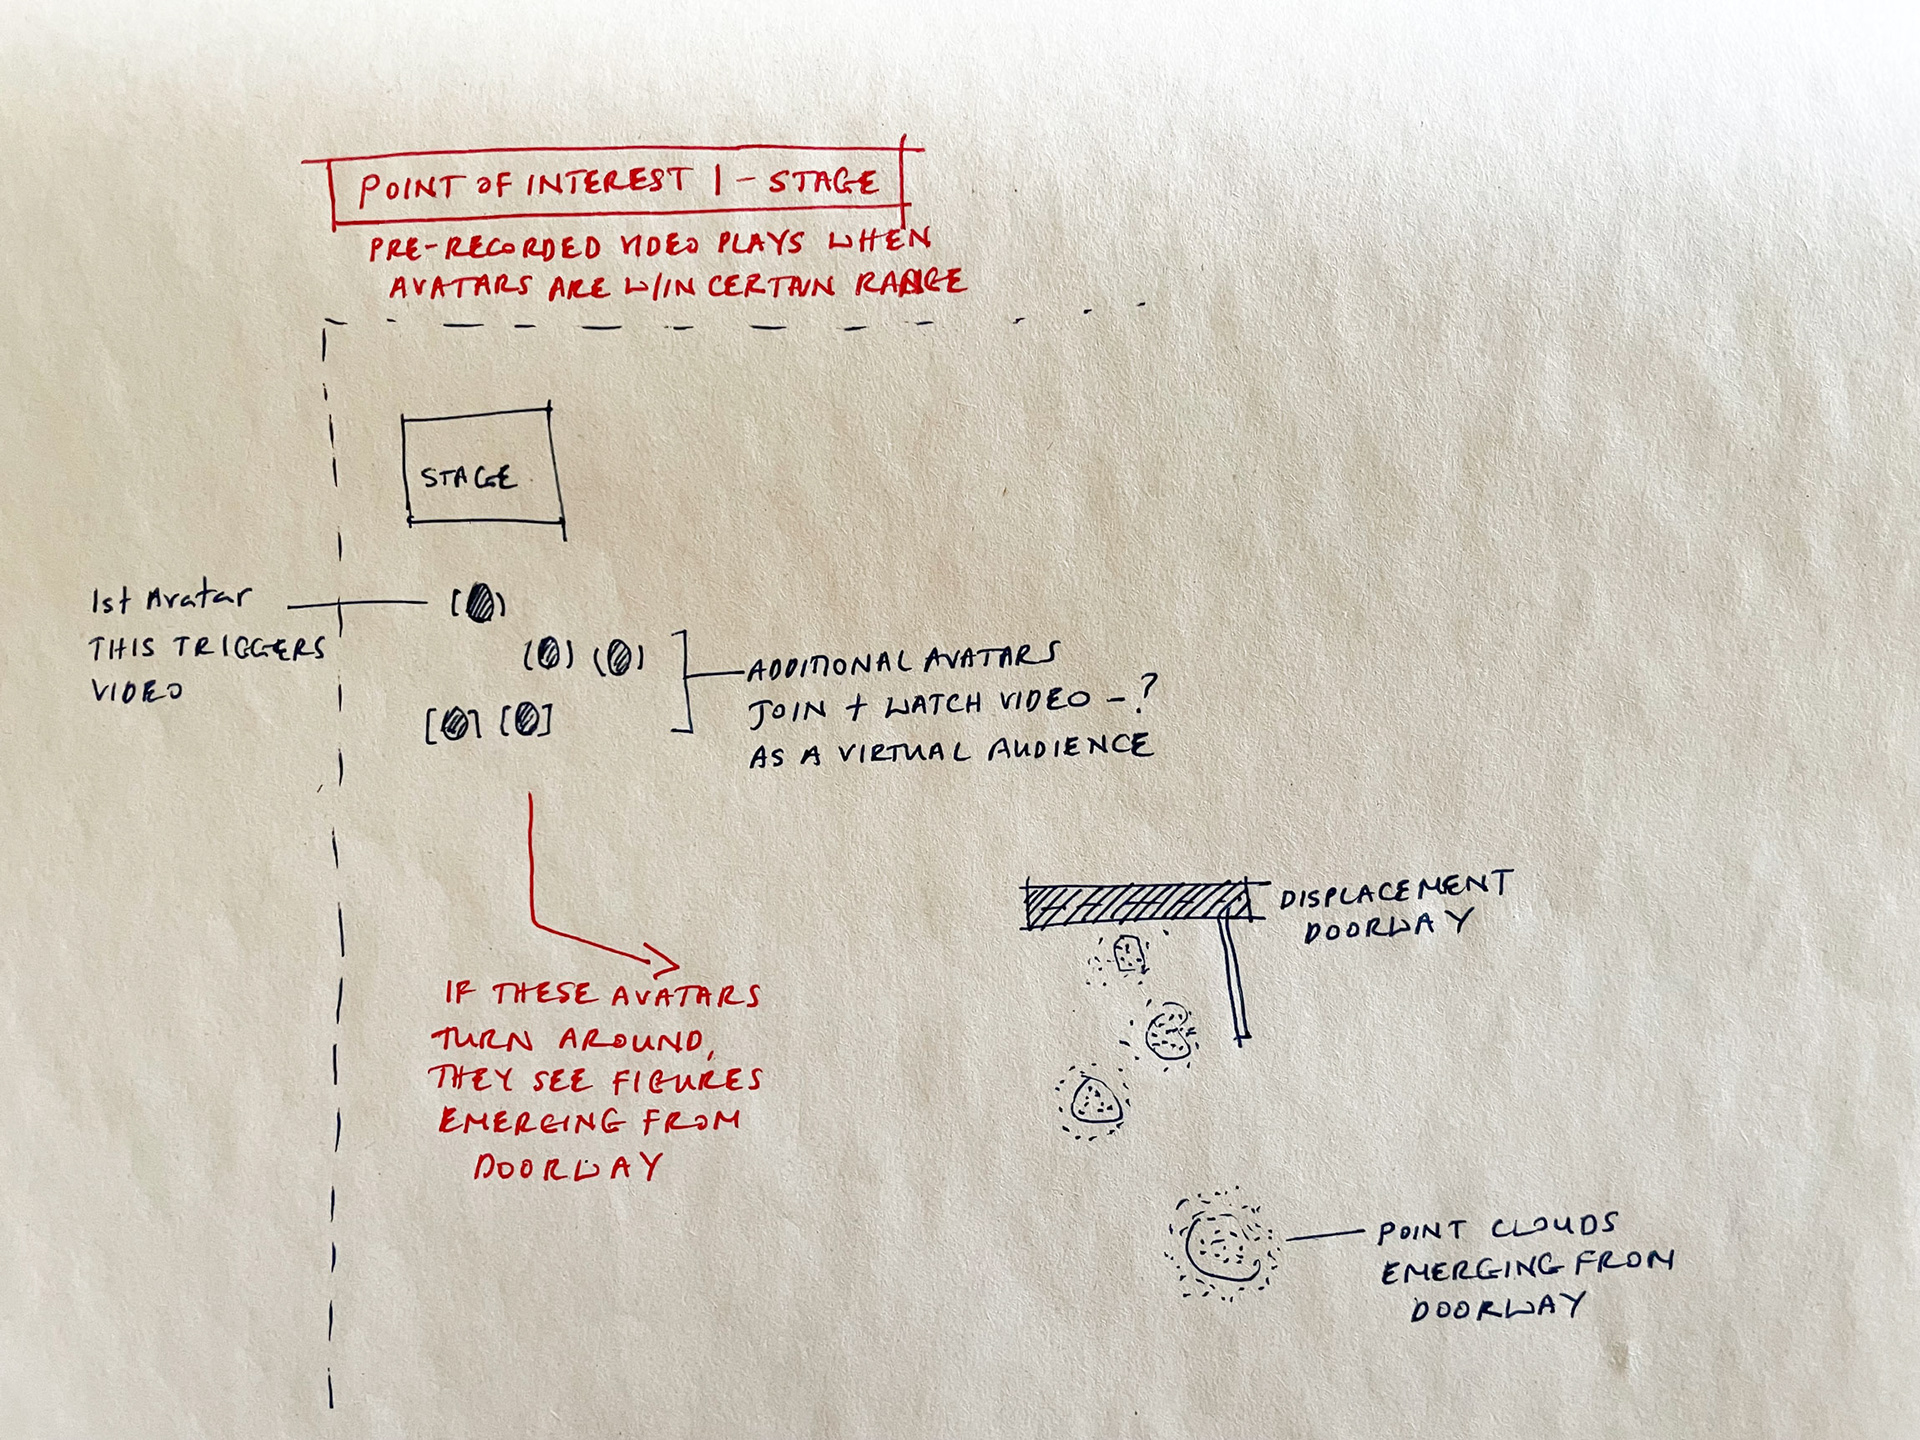 POINT OF INTEREST 1 – STAGE
PRE-RECORDED VIDEO PLAYS WHEN
AVATARS ARE W/IN CERTAIN RANGE
STAGE
1st Avatar
THIS TRIGGERS
VIDEO
ADDITIONAL AVATARS
JOIN + WATCH VIDEO – ?
AS A VIRTUAL AUDIENCE
IF THESE AVATARS
TURN AROUND,
THEY SEE FIGURES
EMERGING FROM
DOORWAY
DISPLACEMENT
DOORWAY
POINT CLOUDS
EMERGING FROM
DOORWAY